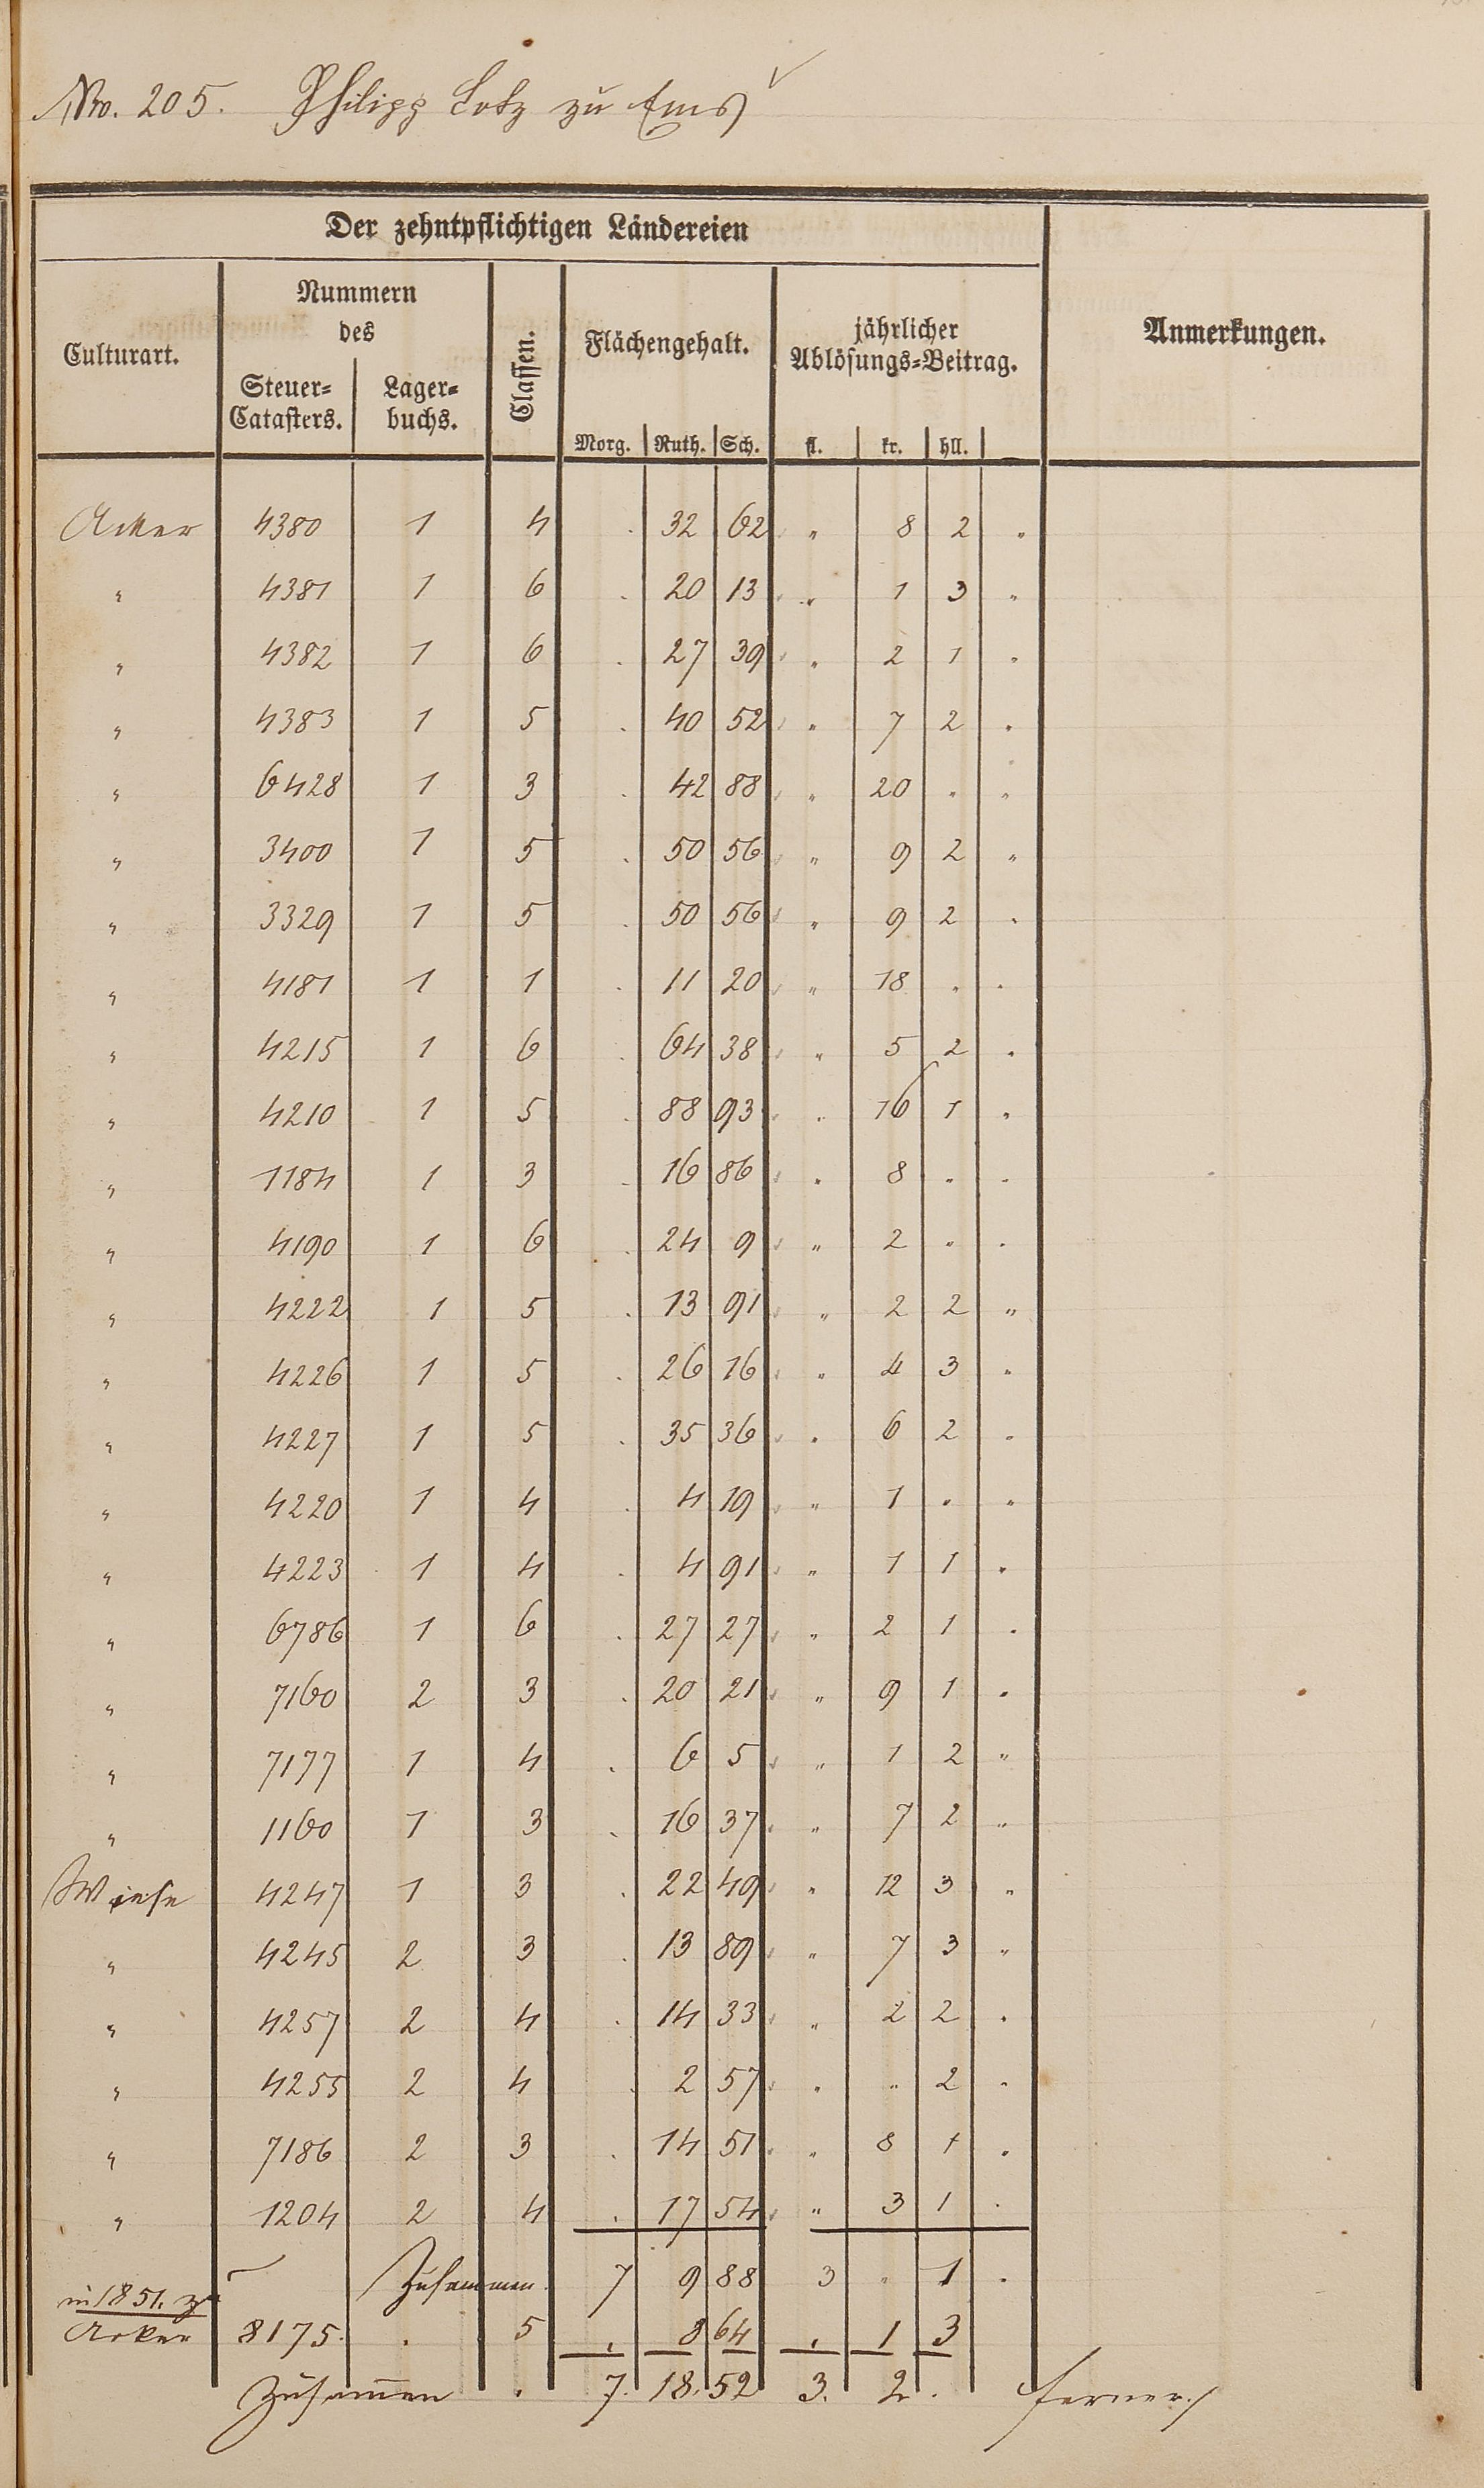 No. 205. Philipp Lotz zu Ems
Der zehntpflichtigen Ländereien
Culturart.
Nummern
des
Steuer=
Catasters.
Lager=
buchs.
Classen.
Flächengehalt.
Morg. Ruth. Sch.
jährlicher
Ablösungs=Beitrag.
fl. kr. hll.
Anmerkungen.
Acker 4380 1 4 . 32 62 " 8 2 "
" 4381 1 6 . 20 13 " 1 3 "
" 4382 1 6 . 27 39 " 2 1 "
" 4383 1 5 . 40 52 " 7 2 "
" 6428 1 3 . 42 88 " 20 " "
" 3400 1 5 . 50 56 " 9 2 "
" 3329 1 5 . 50 56 " 9 2 "
" 4181 1 1 . 11 20 " 18 " "
" 4215 1 6 . 64 38 " 5 2 "
" 4210 1 5 . 88 93 " 16 1 "
" 1184 1 3 . 16 86 " 8 " "
" 4190 1 6 . 24 9 " 2 " "
" 4222 1 5 . 13 91 " 2 2 "
" 4226 1 5 . 26 16 " 4 3 "
" 4227 1 5 . 35 36 " 6 2 "
" 4220 1 4 . 4 19 " 1 " "
" 4223 1 4 . 4 91 " 1 1 "
" 6786 1 6 . 27 27 " 2 1 "
" 7160 2 3 . 20 21 " 9 1 "
" 7177 1 4 . 6 5 " 1 2 "
" 1160 1 3 . 16 37 " 7 2 "
Wiese 4247 1 3 . 22 49 " 12 3 "
" 4245 2 3 . 13 89 " 7 3 "
" 4257 2 4 . 14 33 " 2 2 "
" 4255 2 4 . 2 57 " " 2 "
" 7186 2 3 . 14 51 " 8 1 "
" 1204 2 4 . 17 54 " 3 1 "
Zusammen. 7 9 88 3 " 1 "
in 1851. zu
Acker 8175. . 5 . 8 64 . 1 3
Zusammen . 7. 18. 52 3. 2 . ferner./